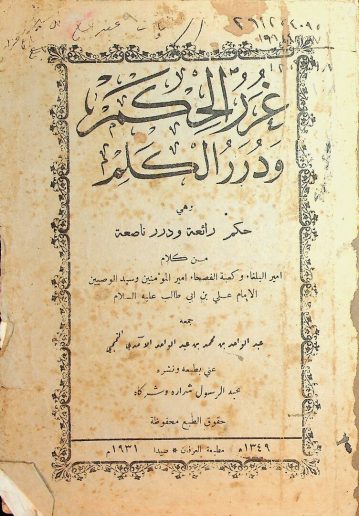 غُرَرُ الحِكَم
وَدُرَرُ الكَلِم
وهي
حكم رائعة ودرر ناصعة
من كلام
امير البلغاء وكعبة الفصحاء امير المؤمنين وسيد الوصيين
الإمام علي بن ابي طالب عليه السلام
جمعه
عبد الواحد بن محمد بن عبد الواحد الآمدي التميمي
عني بطبعه ونشره
عبد الرسول شراره وشركاه
حقوق الطبع محفوظة
١٣٤٩ه مطبعة العرفان * صيدا ١٩٣١م